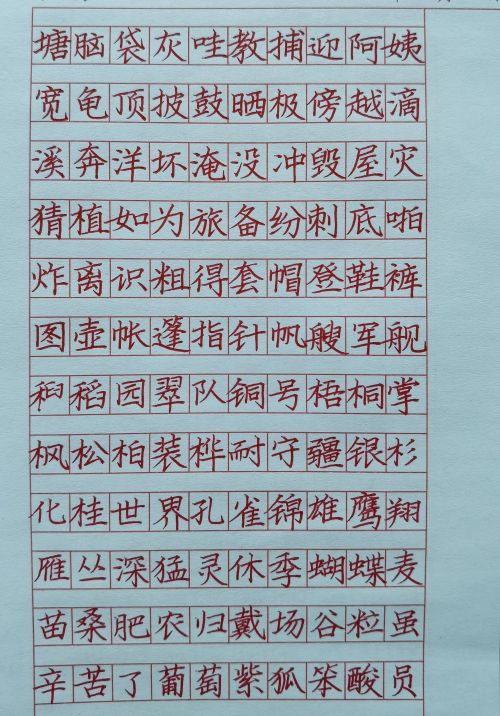 塘脑袋灰哇教捕迎阿姨
宽龟顶披鼓晒极傍越滴
溪奔洋坏淹没冲毁屋灾
猜植如为旅备纷刺底啪
炸离识粗得套帽登鞋裤
图壶帐篷指针帆艘军舰
稻园翠队铜号梧桐掌
枫松柏装桦耐守疆银杉
化桂世界孔雀锦雄鹰翔
雁丛深猛灵休季蝴蝶麦
苗桑肥农归戴场谷粒虽
辛苦了葡萄紫狐笨酸员